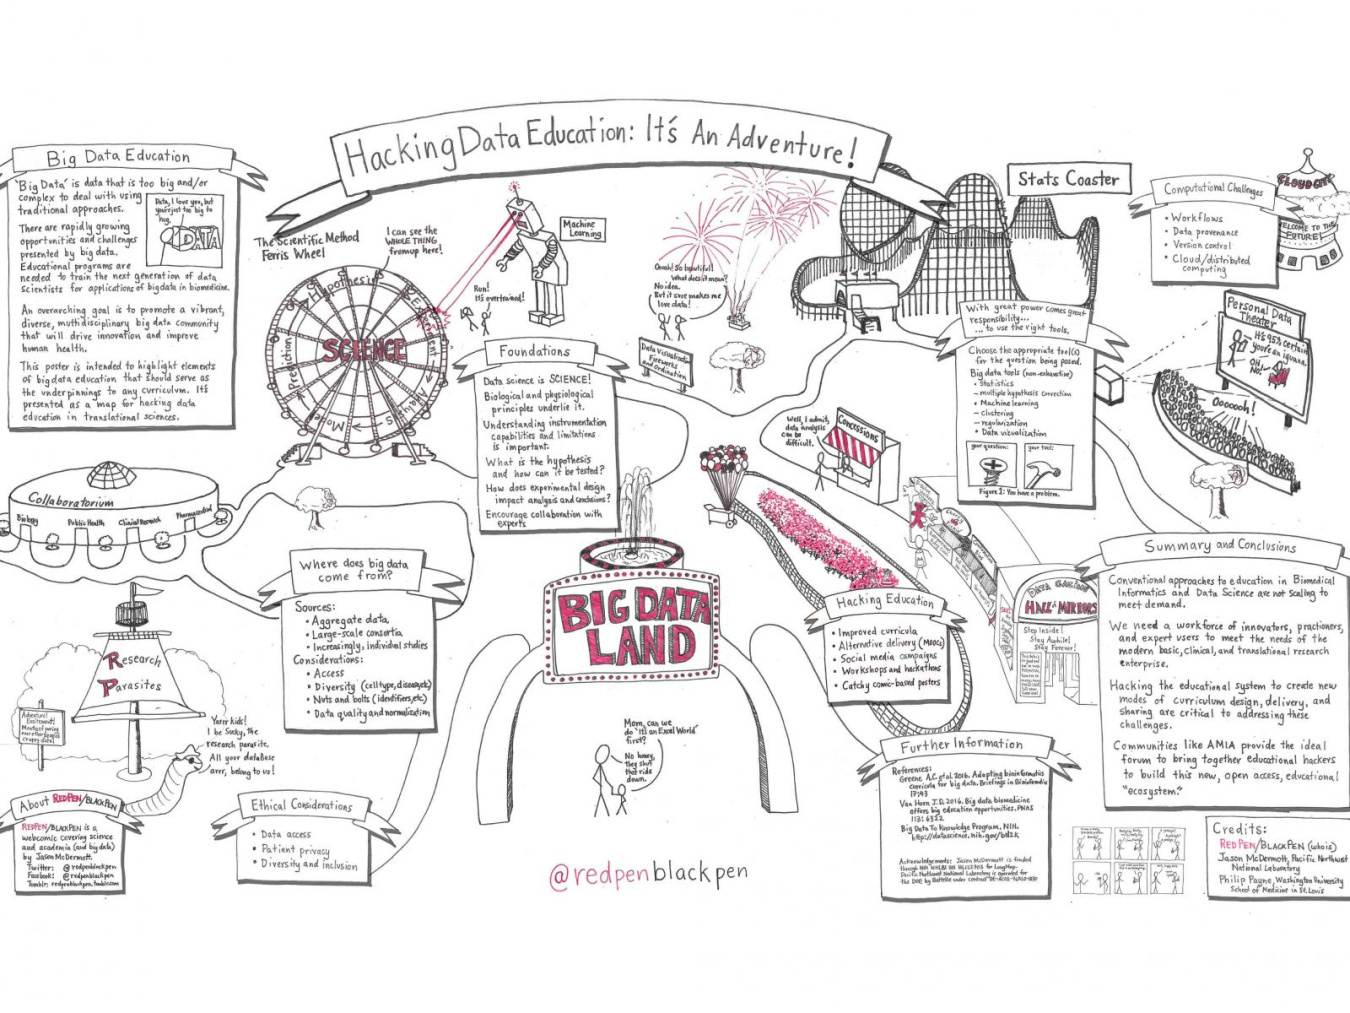 Hacking Data Education: It's An Adventure!
Big Data Education
"Big Data" is data that is too big and/or
complex to deal with using
traditional approaches.
There are rapidly growing
opportunities and challenges
presented by big data.
Educational programs are
needed to train the next generation of data
scientists for applications of big data in biomedicine.
An overarching goal is to promote a vibrant,
diverse, multidisciplinary big data community
that will drive innovation and improve
human health.
This poster is intended to highlight elements
of big data education that should serve as
the underpinnings to any curriculum. It's
presented as a map for hacking data
education in translational sciences.
Data, I love you, but
you're just too big to
hug.
DATA
The Scientific Method
Ferris Wheel
I can see the
WHOLE THING
from up here!
Hypothesis
Experiment
Analysis
Model
Prediction
SCIENCE
Machine
Learning
Run!
It's overtrained!
Foundations
Data science is SCIENCE!
Biological and physiological
principles underlie it.
Understanding instrumentation
capabilities and limitations
is important.
What is the hypothesis
and how can it be tested?
How does experimental design
impact analysis and conclusions?
Encourage collaboration with
experts
Ooooh! So beautiful!
What does it mean?
No idea.
But it sure makes me
love data!
Data Visualization
Fireworks
and Ordination
Stats Coaster
With great power comes great
responsibility...
...to use the right tools.
Choose the appropriate tool(s)
for the question being posed.
Big data tools (non-exhaustive)
• Statistics
- multiple hypothesis correction
• Machine learning
- clustering
- regularization
• Data vizualization
your question:
your tool:
Figure 1: You have a problem.
Computational Challenges
• Workflows
• Data provenance
• Version control
• Cloud/distributed
computing
CLOUD CITY
WELCOME TO THE
FUTURE!
Personal Data
Theater
It's 95% certain
you're an iguana.
OH
NO!
Oooooh!
Well, I admit,
data analysis
can be
difficult.
Concessions
Collaboratorium
Biology
Public Health
Clinical Research
Pharmaceutical
Where does big data
come from?
Sources:
• Aggregate data,
• Large-scale consortia
• Increasingly, individual studies
Considerations:
• Access
• Diversity (cell type, disease, etc)
• Nuts and bolts (identifiers, etc)
• Data quality and normalization
Research
Parasites
Yarrr kids!
I be Sucky, the
research parasite.
All your dataBase
arrr, belong to us!
BIG DATA
LAND
Mom, can we
do "It's an Excel World"
first?
No honey,
they shut
that ride
down.
Hacking Education
• Improved curricula
• Alternative delivery (MOOCs)
• Social media campaigns
• Workshops and hackathons
• Catchy comic-based posters
HALL OF MIRRORS
Step Inside!
Stay Awhile!
Stay Forever!
Summary and Conclusions
Conventional approaches to education in Biomedical
Informatics and Data Science are not scaling to
meet demand.
We need a workforce of innovators, practioners,
and expert users to meet the needs of the
modern basic, clinical, and translational research
enterprise.
Hacking the educational system to create new
modes of curriculum design, delivery, and
sharing are critical to addressing these
challenges.
Communities like AMIA provide the ideal
forum to bring together educational hackers
to build this new, open access, educational
"ecosystem."
About REDPEN/BLACKPEN
REDPEN/BLACKPEN is a
webcomic covering science
and academia (and big data)
by Jason McDermott.
Twitter: @redpenblackpen
Facebook: @redpenblackpen
Tumblr: redpenblackpen.tumblr.com
Ethical Considerations
• Data access
• Patient privacy
• Diversity and inclusion
@redpenblackpen
Further Information
References:
Greene A.C. et al. 2016. Adapting bioinformatics
curricula for big data. Briefings in Bioinformatics
17:43
Van Horn J.D. 2016. Big data biomedicine
offers big education opportunities. PNAS
113: 6322
Big Data To Knowledge Program, NIH.
http://datascience.nih.gov/bd2k
Acknowledgements: Jason McDermott is funded
Pacific Northwest National Laboratory is operated for
the DOE by Battelle under contract
Credits:
REDPEN/BLACKPEN (who is)
Jason McDermott, Pacific Northwest
National Laboratory
Philip Payne, Washington University
School of Medicine in St. Louis